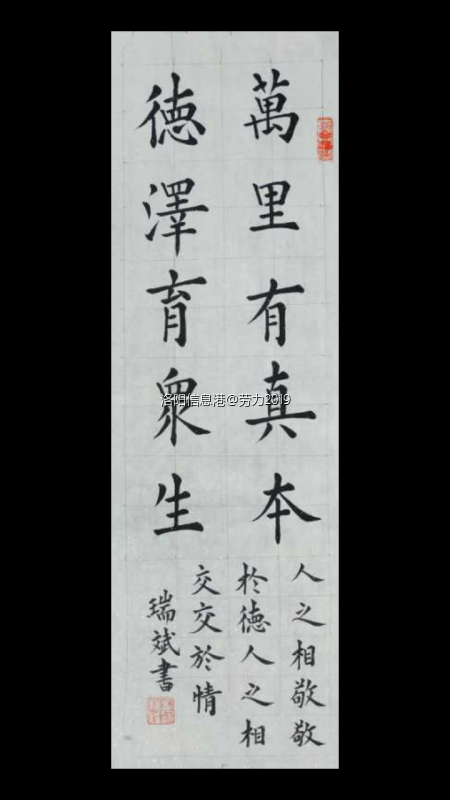 萬里有真本
徳澤育衆生
人之相敬敬
於徳人之相
交交於情
瑞斌書
洛阳信息港@劳力2019